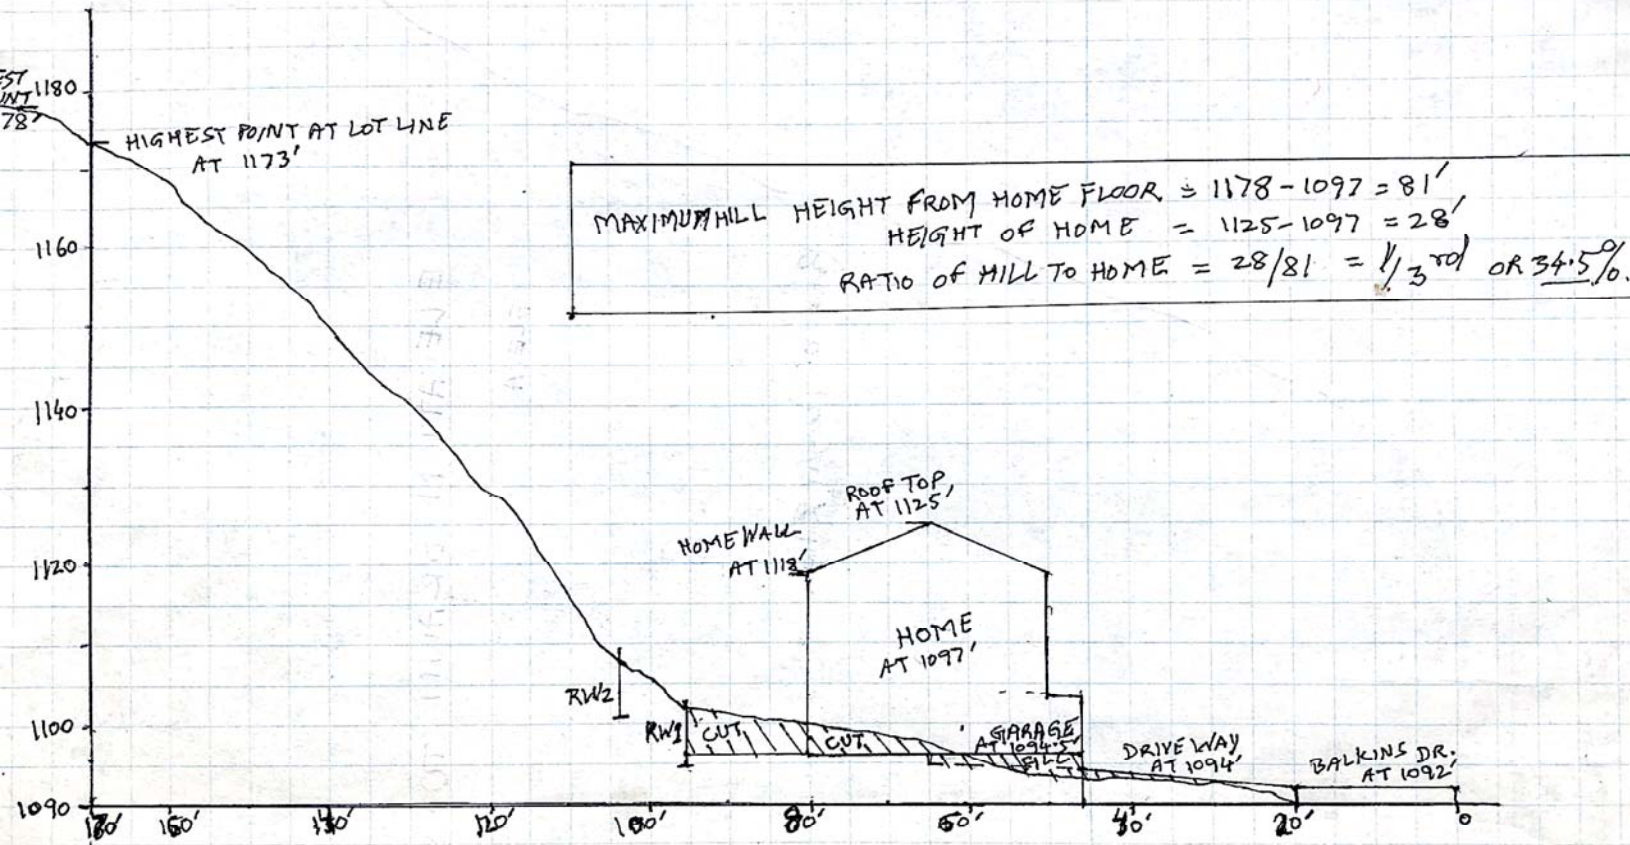 1180
EST
INT
78'
HIGHEST POINT AT LOT LINE
AT 1173'
MAXIMUM HILL HEIGHT FROM HOME FLOOR = 1178-1097 = 81'
HEIGHT OF HOME = 1125-1097 = 28'
RATIO OF HILL TO HOME = 28/81 = 1/3 rd OR 34.5%.
1160
1140
ROOF TOP
AT 1125'
HOME WALL
AT 1118'
1120
HOME
AT 1097'
RW2
1100
RW1
CUT
CUT
GARAGE
AT 1094.5'
FILL
DRIVE WAY
AT 1094'
BALKINS DR.
AT 1092'
1090
160' 120' 100' 80' 60' 20' 0